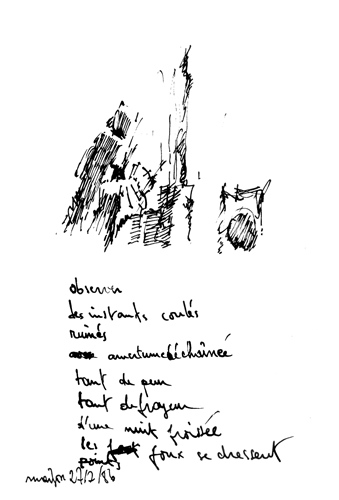 observer
des instants coulés
ruinés
amertume déchaînée
tant de peur
tant de frayeur
d'une nuit froissée
les
points foux se dressent
27/2/86